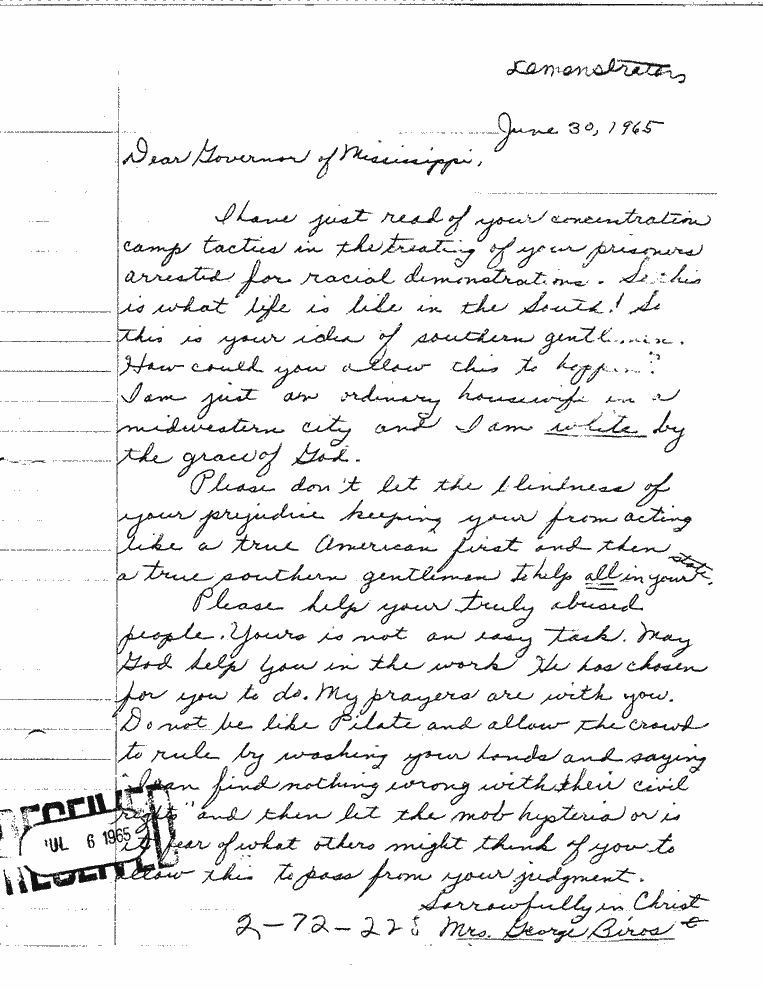 Demonstrators
June 30, 1965
Dear Governor of Mississippi,
I have just read of your concentration
camp tactics in the treating of your prisoners
arrested for racial demonstrations. So this
is what life is like in the South! So
this is your idea of southern gentlemen.
How could you allow this to happen?
I am just an ordinary housewife in a
midwestern city and I am white by
the grace of God.
Please don't let the blindness of
your prejudice keeping your from acting
like a true American first and then
a true southern gentleman to help all in your state.
Please help your truly abused
people. Yours is not an easy task. May
God help you in the work He has chosen
for you to do. My prayers are with you.
Do not be like Pilate and allow the crowd
to rule by washing your hands and saying
"I can find nothing wrong with their civil
right" and then let the mob hysteria or is
it fear of what others might think of you to
allow this to pass from your judgment.
RECEIVED
JUL 6 1965
RECEIVED
Sorrowfully in Christ
2-72-22 Mrs. George Biros